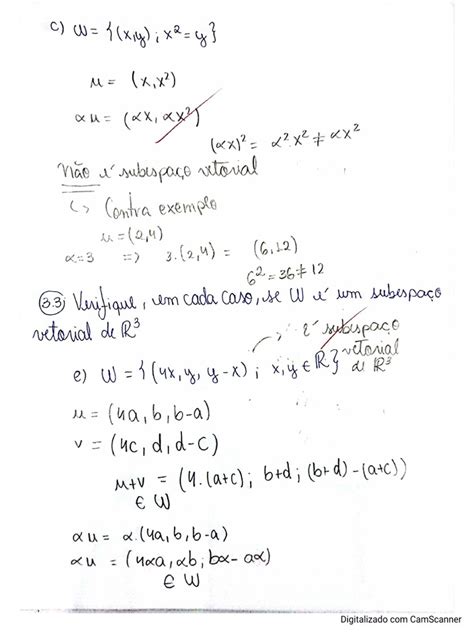 c) W = {(x,y) ; x² = y}
u = (x, x²)
αu = (αx, αx²)
(αx)² = α².x² ≠ αx²
Não é subespaço vetorial
↳ Contra exemplo
u = (2,4)
α=3 ⇒ 3.(2,4) = (6,12)
6² = 36 ≠ 12
3.3) Verifique, em cada caso, se W é um subespaço
vetorial de ℝ³
É subespaço
vetorial
de ℝ³
e) W = {(4x, y, y-x) ; x,y ∈ ℝ}
u = (4a, b, b-a)
v = (4c, d, d-c)
u+v = (4.(a+c) ; b+d ; (b+d)-(a+c))
∈ W
αu = α.(4a, b, b-a)
αu = (4αa, αb ; bα-aα)
∈ W
Digitalizado com CamScanner